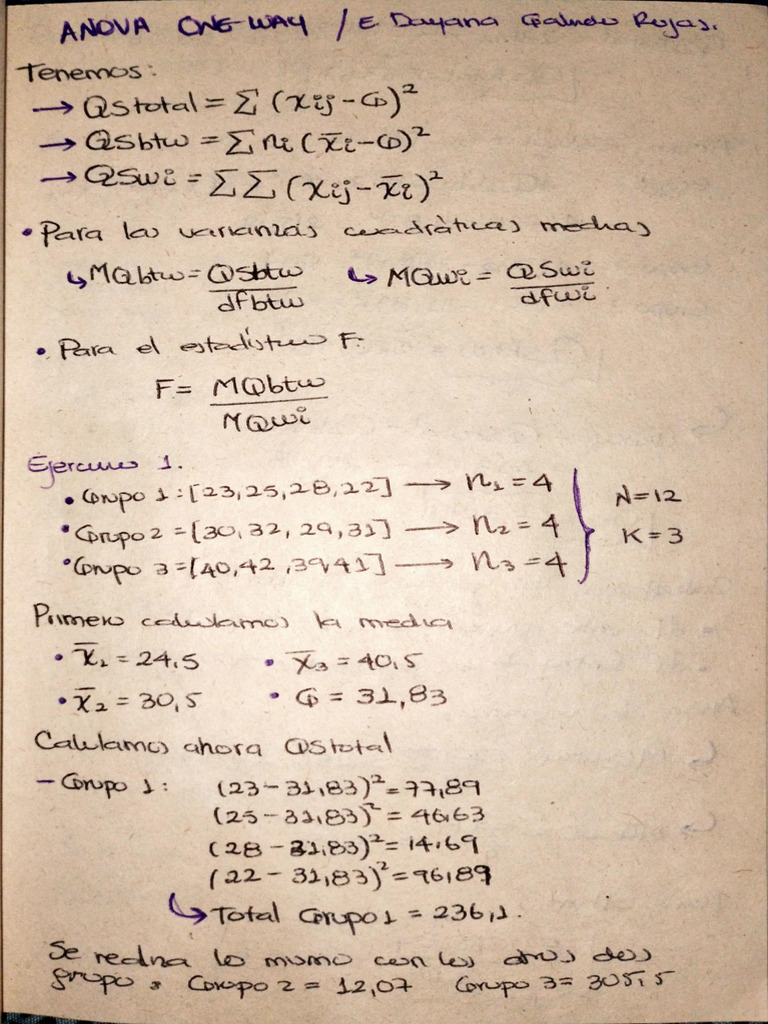 ANOVA ONE-WAY / E. Dayana Galindo Rojas.
Tenemos:
→ QStotal = Σ (xij - G)²
→ QSbtw = Σ ni (x̄i - G)²
→ QSwi = Σ Σ (xij - x̄i)²
• Para las varianzas cuadráticas medias
↳ MQbtw = QSbtw / dfbtw ↳ MQwi = QSwi / dfwi
• Para el estadístico F.
F = MQbtw / MQwi
Ejercicio 1.
• Grupo 1: [23, 25, 28, 22] → n₁ = 4
• Grupo 2 = [30, 32, 29, 31] → n₂ = 4
• Grupo 3 = [40, 42, 39 41] → n₃ = 4
N = 12
K = 3
Primero calculamos la media
• x̄₁ = 24,5 • x̄₃ = 40,5
• x̄₂ = 30,5 • G = 31,83
Calculamos ahora QStotal
- Grupo 1: (23 - 31,83)² = 77,89
(25 - 31,83)² = 46,63
(28 - 31,83)² = 14,69
(22 - 31,83)² = 96,89
↳ Total Grupo 1 = 236,1.
Se realiza lo mismo con los otros dos
grupo. Grupo 2 = 12,07 Grupo 3 = 305,5